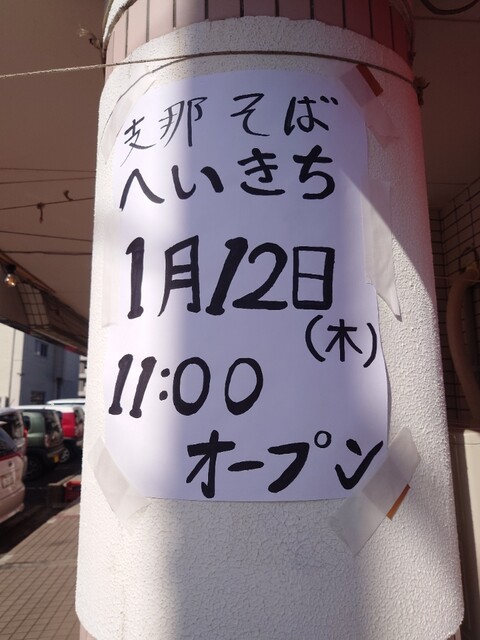 支那そば
へいきち
1月12日
(木)
11:00
オープン